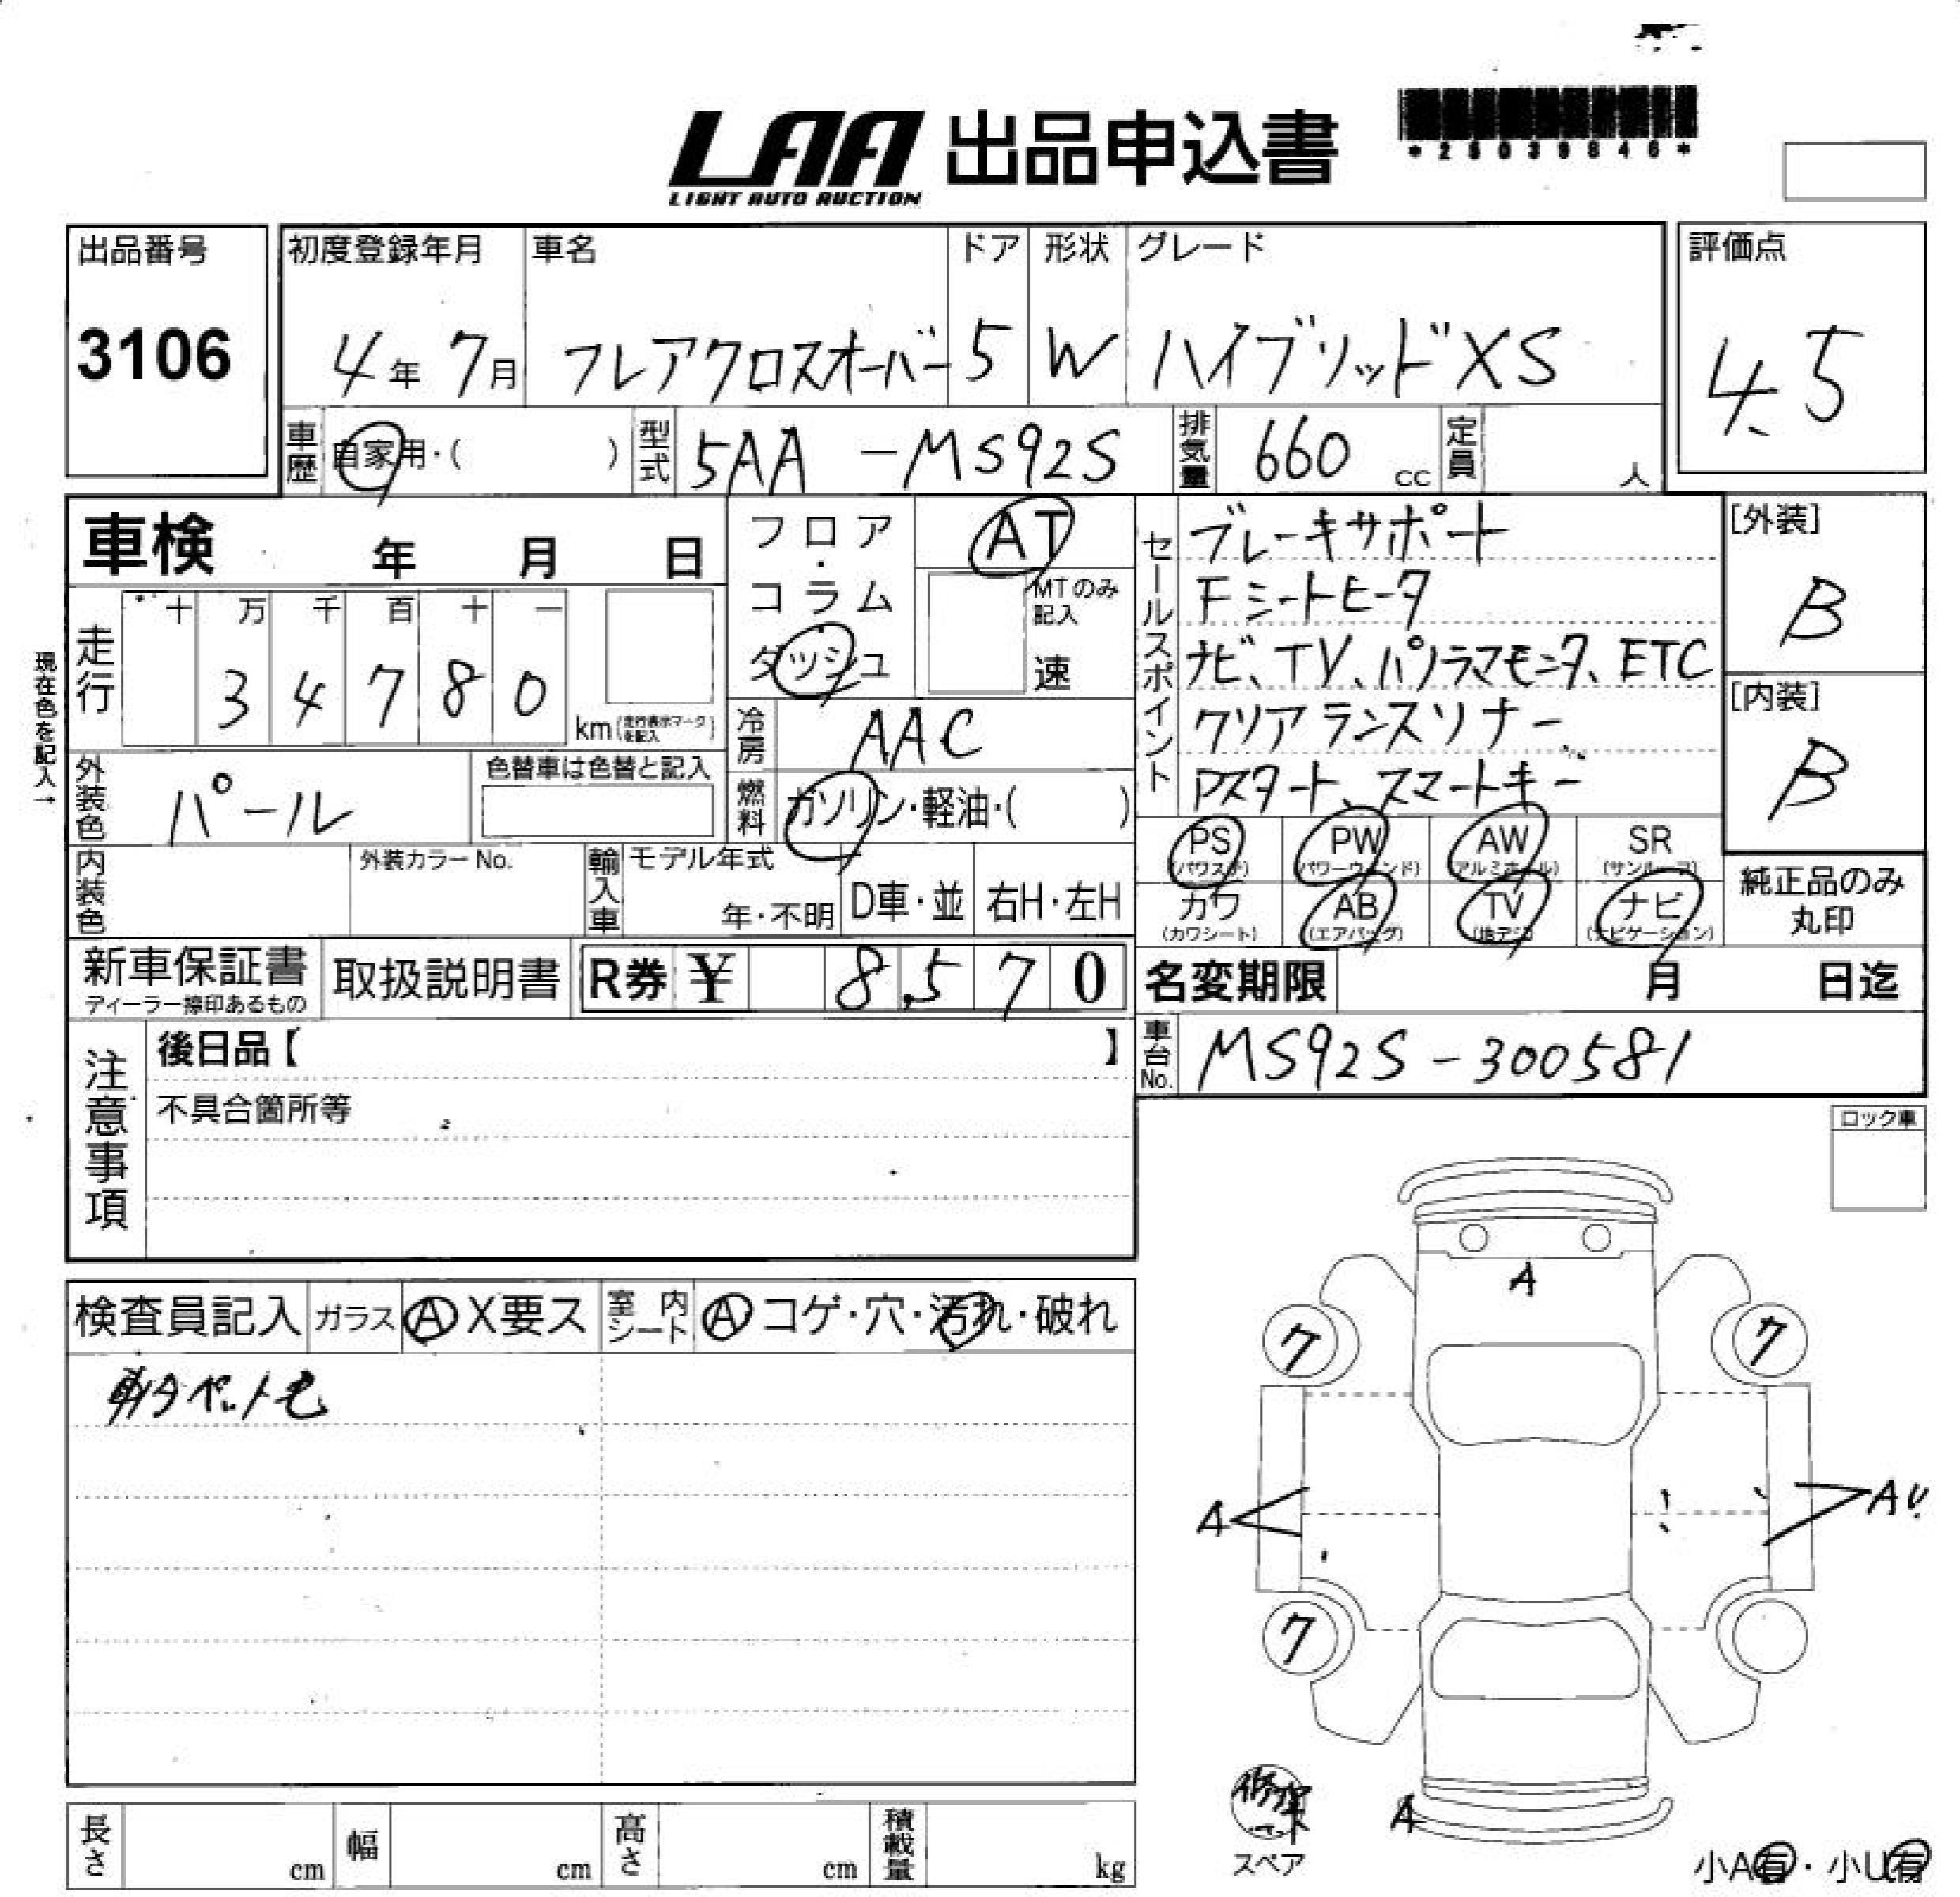 LAA 出品申込書
LIGHT AUTO AUCTION
*25039846*
出品番号
3106
初度登録年月
4年 7月
車名
フレアクロスオーバー
ドア
5
形状
W
グレード
ハイブリッドXS
評価点
4.5
車歴
自家用・( )
型式
5AA -MS92S
排気量
660 cc
定員
人
車検 年 月 日
現在色を記入→
走行
十 万 千 百 十 一
3 4 7 8 0
km (走行表示マークを記入)
フロア・コラム・ダッシュ
AT
MTのみ記入
速
冷房
AAC
燃料
ガソリン・軽油・( )
外装色
パール
色替車は色替と記入
内装色
外装カラーNo.
輸入車
モデル年式
年・不明
D車・並
右H・左H
セールスポイント
ブレーキサポート
Fシートヒータ
ナビ、TV、パノラマモニタ、ETC
クリアランスソナー
Pスタート、スマートキー
[外装]
B
[内装]
B
PS (パワステ)
PW (パワーウィンド)
AW (アルミホイール)
SR (サンルーフ)
カワ (カワシート)
AB (エアバッグ)
TV (地デジ)
ナビ (ナビゲーション)
純正品のみ丸印
新車保証書
ディーラー捺印あるもの
取扱説明書
R券 ¥ 8,570
名変期限 月 日迄
車台No.
MS92S-300581
注意事項
後日品【 】
不具合箇所等
ロック車
検査員記入
ガラス
A X要ス
室内シート
A コゲ・穴・汚れ・破れ
ペット毛
A
7
7
A
AU
7
A
スペア
小A有・小U有
長さ cm
幅 cm
高さ cm
積載量 kg